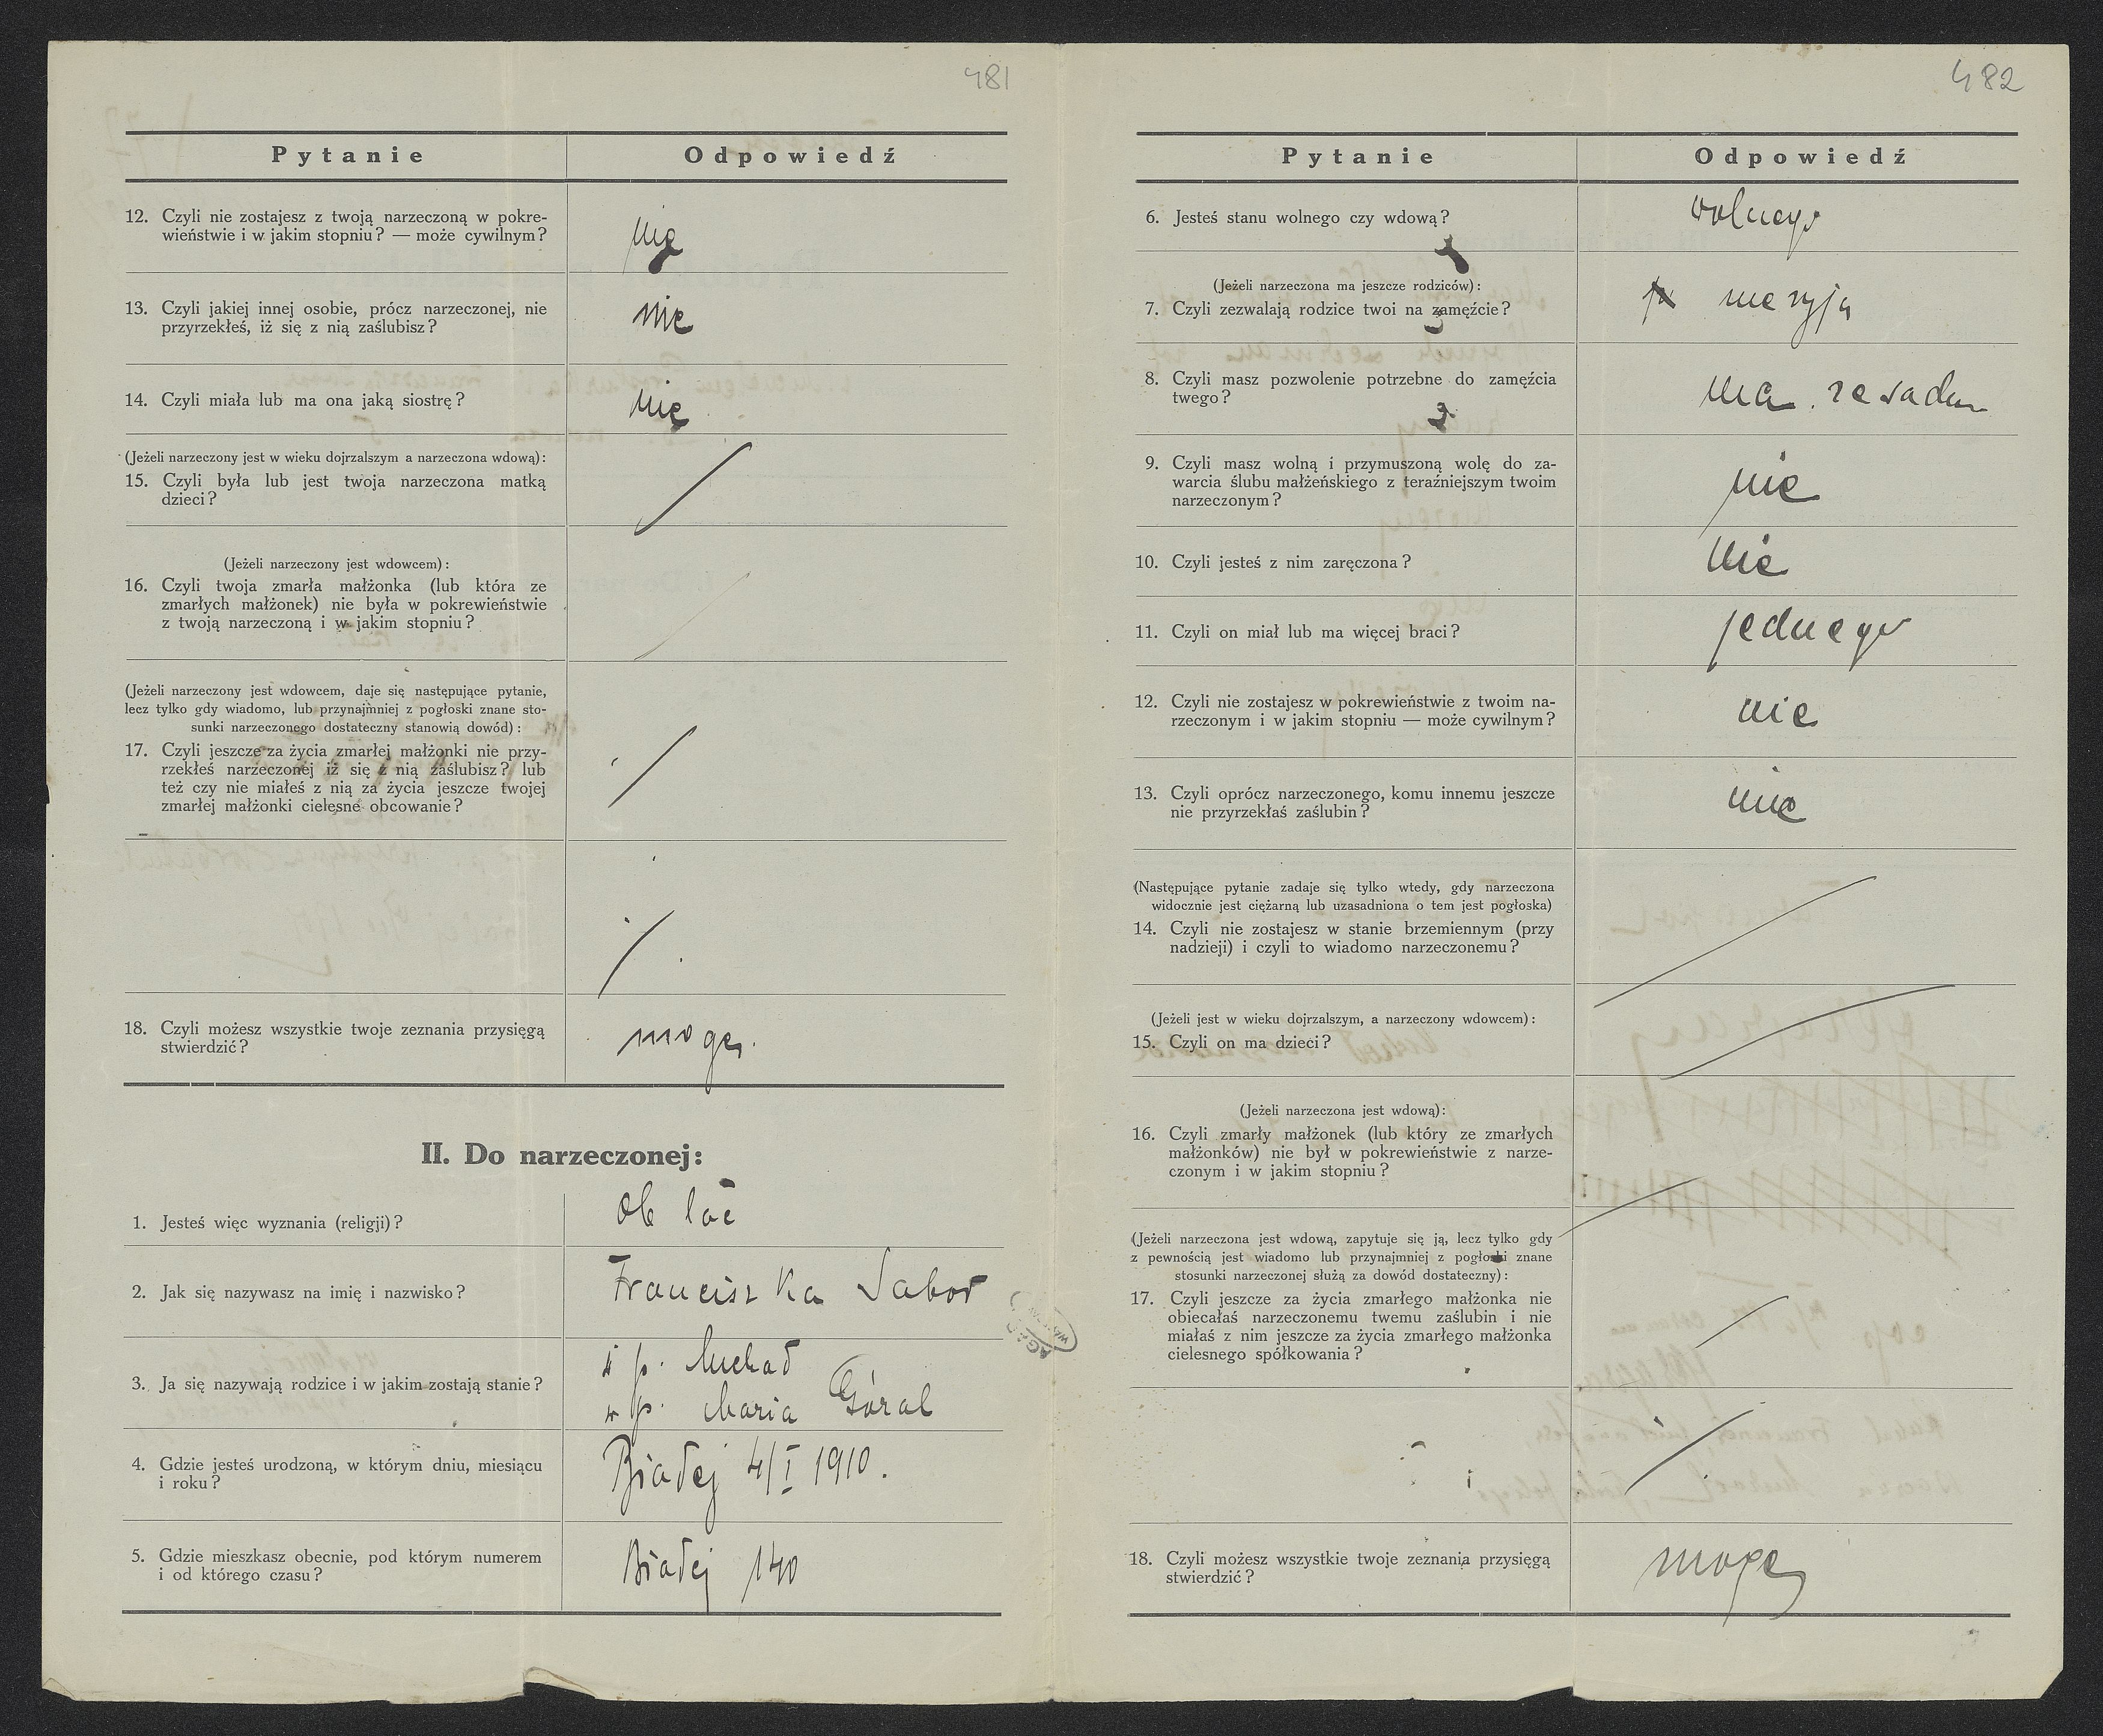 481
Pytanie
Odpowiedź
12. Czyli nie zostajesz z twoją narzeczoną w pokre-
wieństwie i w jakim stopniu? — może cywilnym?
nie
13. Czyli jakiej innej osobie, prócz narzeczonej, nie
przyrzekłeś, iż się z nią zaślubisz?
nie
14. Czyli miała lub ma ona jaką siostrę?
nie
(Jeżeli narzeczony jest w wieku dojrzalszym a narzeczona wdową):
15. Czyli była lub jest twoja narzeczona matką
dzieci?
(Jeżeli narzeczony jest wdowcem):
16. Czyli twoja zmarła małżonka (lub która ze
zmarłych małżonek) nie była w pokrewieństwie
z twoją narzeczoną i w jakim stopniu?
(Jeżeli narzeczony jest wdowcem, daje się następujące pytanie,
lecz tylko gdy wiadomo, lub przynajmniej z pogłoski znane sto-
sunki narzeczonego dostateczny stanowią dowód):
17. Czyli jeszcze za życia zmarłej małżonki nie przy-
rzekłeś narzeczonej iż się z nią zaślubisz? lub
też czy nie miałeś z nią za życia jeszcze twojej
zmarłej małżonki cielęsne obcowanie?
18. Czyli możesz wszystkie twoje zeznania przysięgą
stwierdzić?
mogę.
II. Do narzeczonej:
1. Jesteś więc wyznania (religji)?
2. Jak się nazywasz na imię i nazwisko?
Franciszka Sabor
3. Ja się nazywają rodzice i w jakim zostają stanie?
ś p. Michał
ś p. Maria Góral
4. Gdzie jesteś urodzoną, w którym dniu, miesiącu
i roku?
Białej 4/I 1910.
5. Gdzie mieszkasz obecnie, pod którym numerem
i od którego czasu?
Białej 140
482
Pytanie
Odpowiedź
6. Jesteś stanu wolnego czy wdową?
wolnego
(Jeżeli narzeczona ma jeszcze rodziców):
7. Czyli zezwalają rodzice twoi na zamęźcie?
nie żyją
8. Czyli masz pozwolenie potrzebne do zamęźcia
twego?
ma ze sadu
9. Czyli masz wolną i przymuszoną wolę do za-
warcia ślubu małżeńskiego z teraźniejszym twoim
narzeczonym?
nie
10. Czyli jesteś z nim zaręczona?
nie
11. Czyli on miał lub ma więcej braci?
jednego
12. Czyli nie zostajesz w pokrewieństwie z twoim na-
rzeczonym i w jakim stopniu — może cywilnym?
nie
13. Czyli oprócz narzeczonego, komu innemu jeszcze
nie przyrzekłaś zaślubin?
nie
(Następujące pytanie zadaje się tylko wtedy, gdy narzeczona
widocznie jest ciężarną lub uzasadniona o tem jest pogłoska)
14. Czyli nie zostajesz w stanie brzemiennym (przy
nadzieji) i czyli to wiadomo narzeczonemu?
(Jeżeli jest w wieku dojrzalszym, a narzeczony wdowcem):
15. Czyli on ma dzieci?
(Jeżeli narzeczona jest wdową):
16. Czyli zmarły małżonek (lub który ze zmarłych
małżonków) nie był w pokrewieństwie z narze-
czonym i w jakim stopniu?
(Jeżeli narzeczona jest wdową, zapytuje się ją, lecz tylko gdy
z pewnością jest wiadomo lub przynajmniej z pogłoski znane
stosunki narzeczonej służą za dowód dostateczny):
17. Czyli jeszcze za życia zmarłego małżonka nie
obiecałaś narzeczonemu twemu zaślubin i nie
miałaś z nim jeszcze za życia zmarłego małżonka
cielesnego spółkowania?
18. Czyli możesz wszystkie twoje zeznania przysięgą
stwierdzić?
mogę